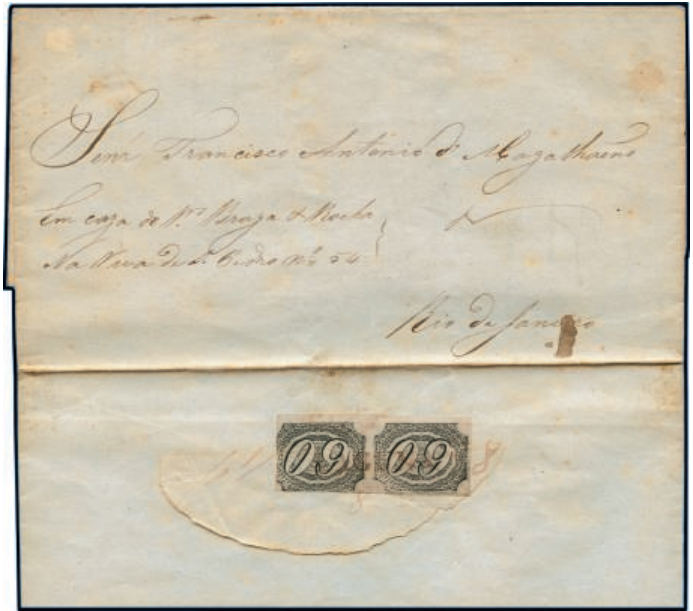 Senr Francisco Antonio de Magalhaens
Em caza de Snrs Braga & Rocha
Na Rua de S. Pedro No 54
Rio de Janeiro
60 60